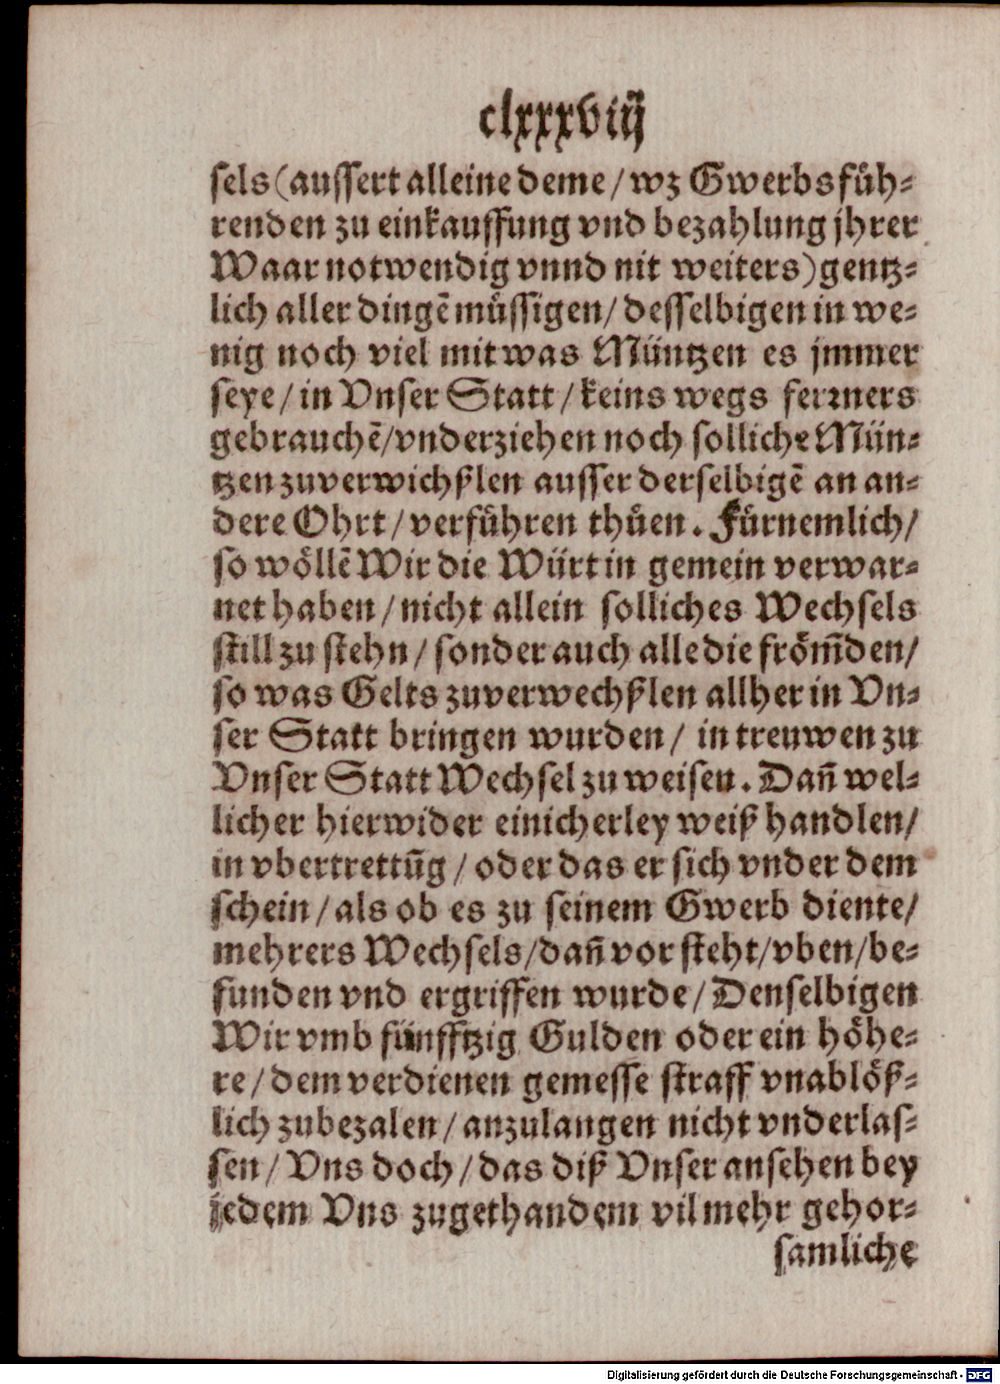 clxxxviij
sels (aussert alleine deme / wz Gwerbsfüh⸗
renden zu einkauffung vnd bezahlung jhrer
Waar notwendig vnnd nit weiters) gentz⸗
lich aller dingẽ müssigen / desselbigen in we⸗
nig noch viel mit was Müntzen es jmmer
seye / in Vnser Statt / keins wegs ferꝛners
gebrauchẽ / vnderziehen noch solliche Mün⸗
tzen zuverwichßlen ausser derselbigẽ an an⸗
dere Ohrt / verführen thüen. Fürnemlich /
so wöllẽ Wir die Würt in gemein verwar⸗
net haben / nicht allein solliches Wechsels
still zu stehn / sonder auch alle die fröm̃den /
so was Gelts zuverwechßlen allher in Vn⸗
ser Statt bringen wurden / in treuwen zu
Vnser Statt Wechsel zu weisen. Dañ wel⸗
licher hierwider einicherley weiß handlen /
in vbertrettũg / oder das er sich vnder dem
schein / als ob es zu seinem Gwerb diente /
mehrers Wechsels / dañ vor steht / vben / be⸗
funden vnd ergriffen wurde / Denselbigen
Wir vmb fünfftzig Gulden oder ein höhe⸗
re / dem verdienen gemesse straff vnablöß⸗
lich zubezalen / anzulangen nicht vnderlas⸗
sen / Vns doch / das diß Vnser ansehen bey
jedem Vns zugethandem vil mehr gehor⸗
samliche
Digitalisierung gefördert durch die Deutsche Forschungsgemeinschaft - DFG